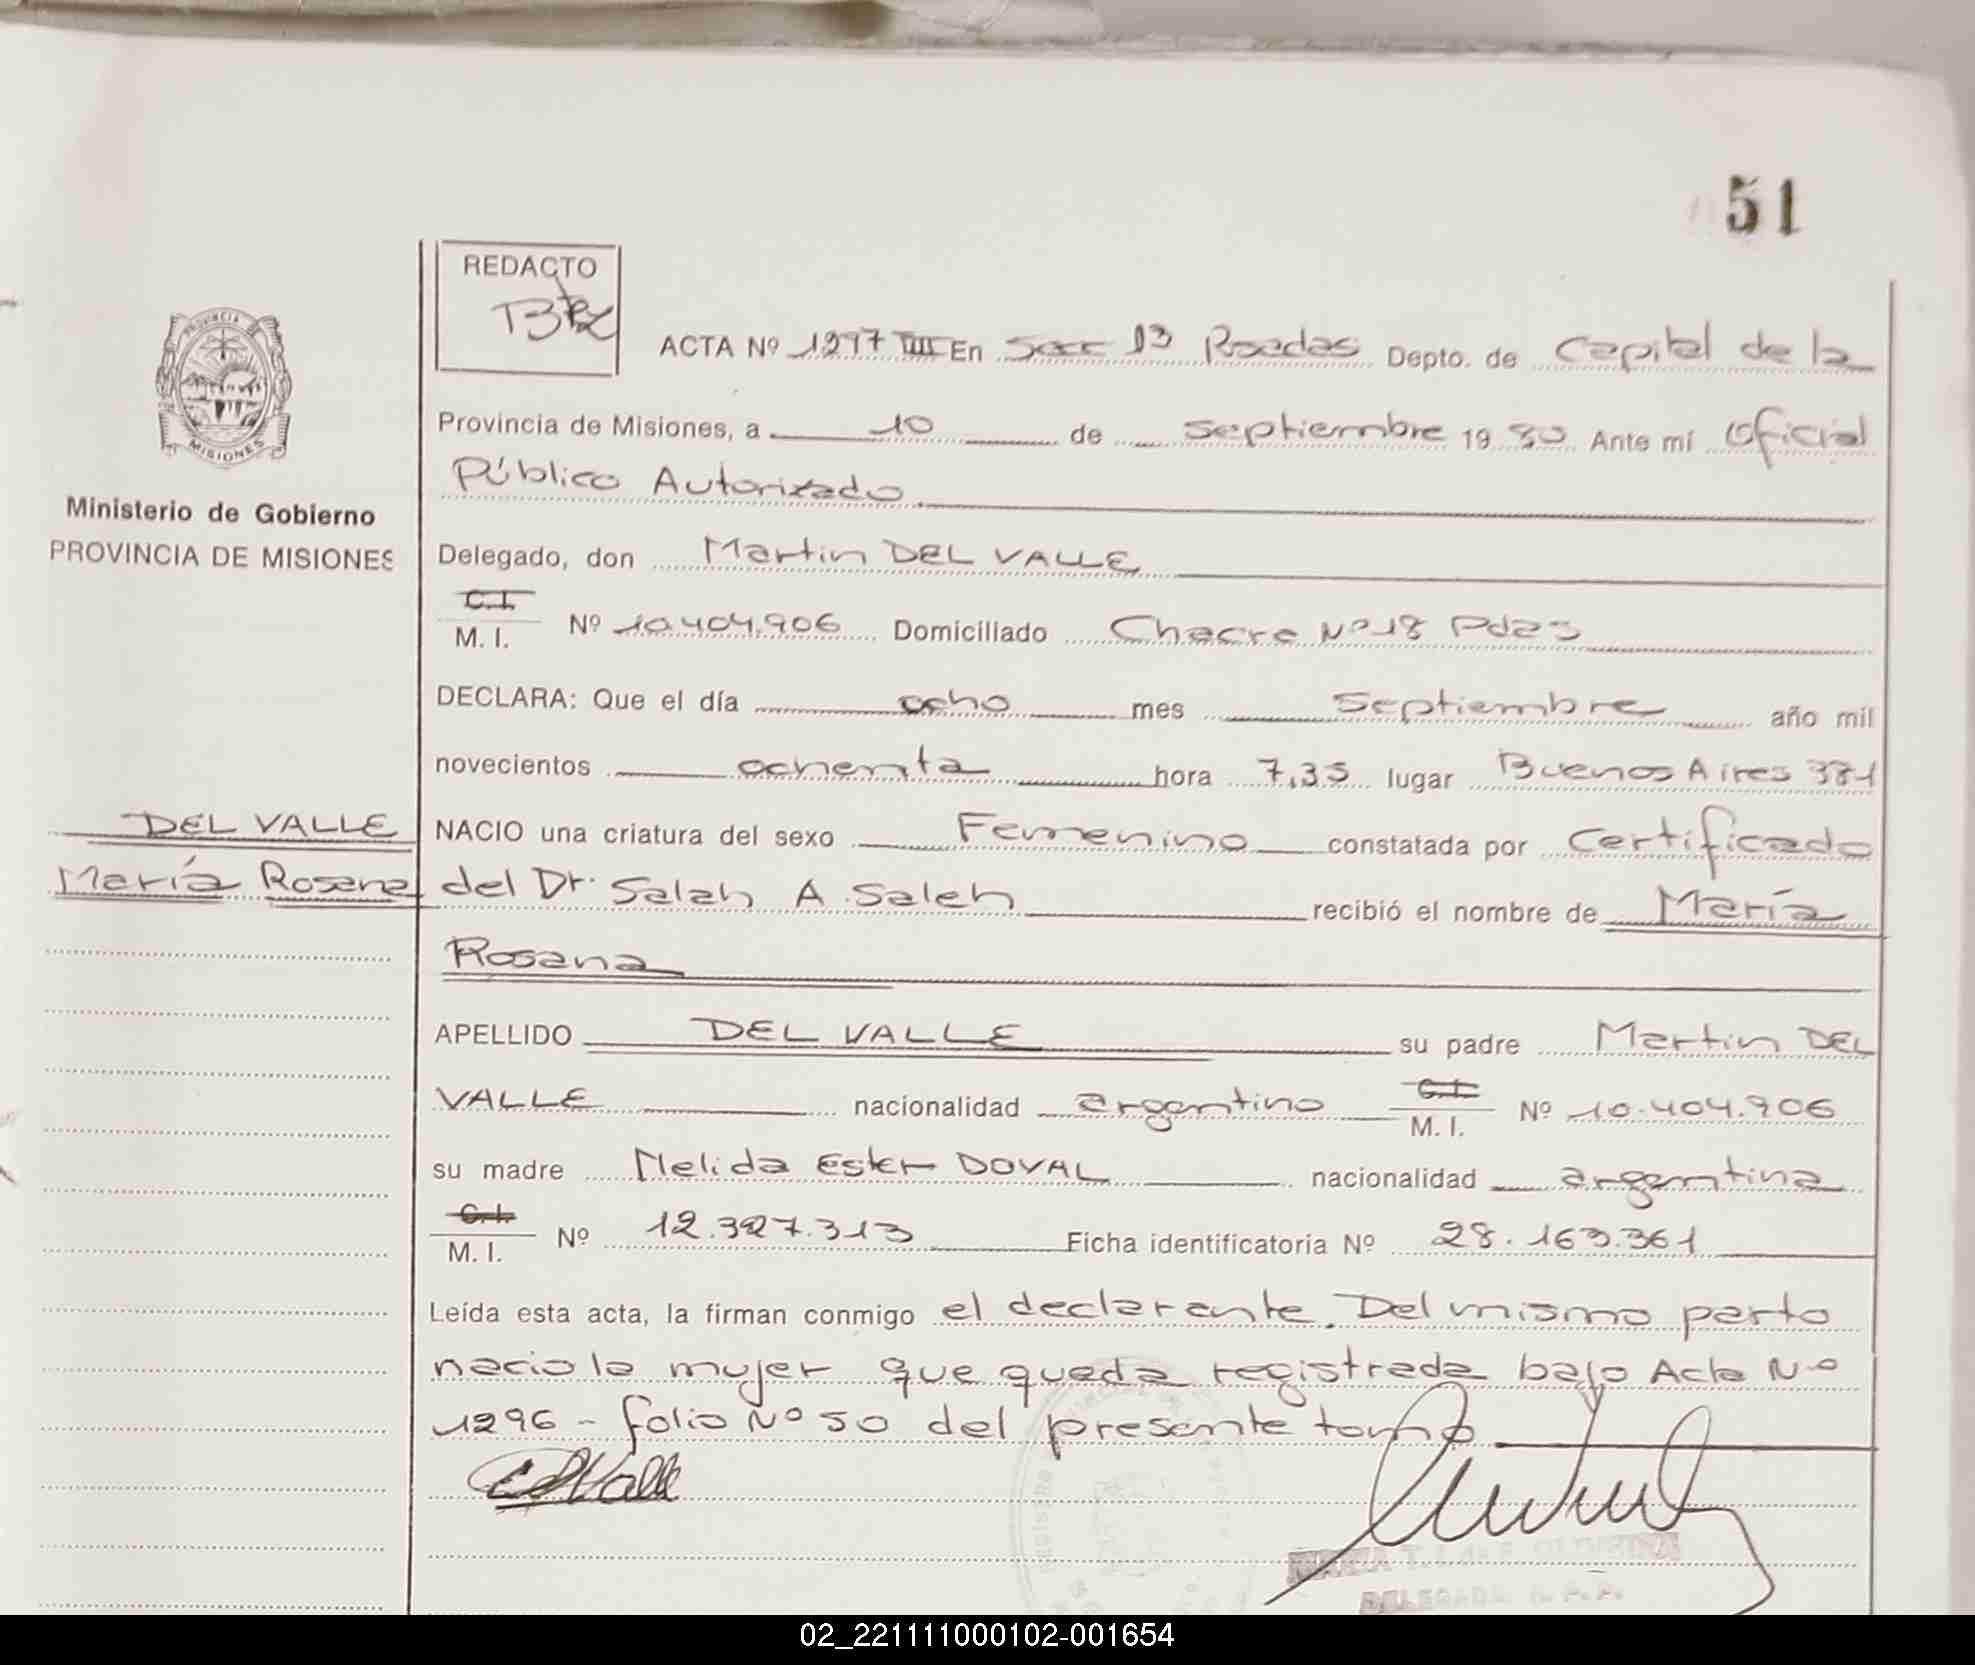 51
REDACTO
PROVINCIA
MISIONES
ACTA Nº 1297 TIII En Secc 13 Posadas Depto. de Capital de la
Provincia de Misiones, a 10 de septiembre 19 80 Ante mí Oficial
Público Autorizado
Ministerio de Gobierno
PROVINCIA DE MISIONES
Delegado, don Martin DEL VALLE
C.I.
M. I. Nº 10.404.906 Domiciliado Chacra Nº 18 Pdas
DECLARA: Que el día ocho mes septiembre año mil
novecientos ochenta hora 7,35 lugar Buenos Aires 381
DEL VALLE
María Rosana
NACIO una criatura del sexo Femenino constatada por Certificado
del Dr. Saleh A. Saleh recibió el nombre de María
Rosana
APELLIDO DEL VALLE su padre Martin DEL
VALLE nacionalidad argentino C.I. M. I. Nº 10.404.906
su madre Nelida Ester DOVAL nacionalidad argentina
C.I.
M. I. Nº 12.327.313 Ficha identificatoria Nº 28.163.361
Leída esta acta, la firman conmigo el declarante. Del mismo parto
nacio la mujer que queda registrada bajo Acta Nº
1296 - folio Nº 50 del presente tomo
02_221111000102-001654